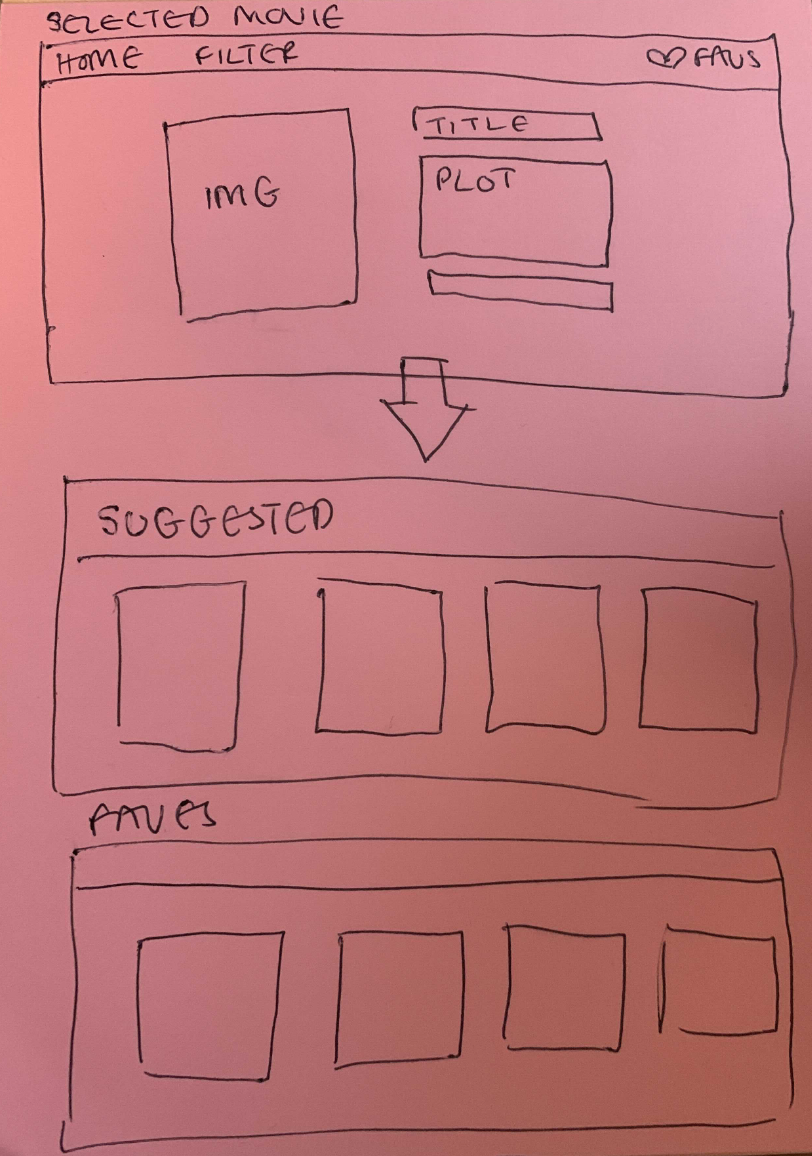 SELECTED MOVIE
HOME FILTER ♡ FAVS
IMG
TITLE
PLOT
SUGGESTED
FAVES